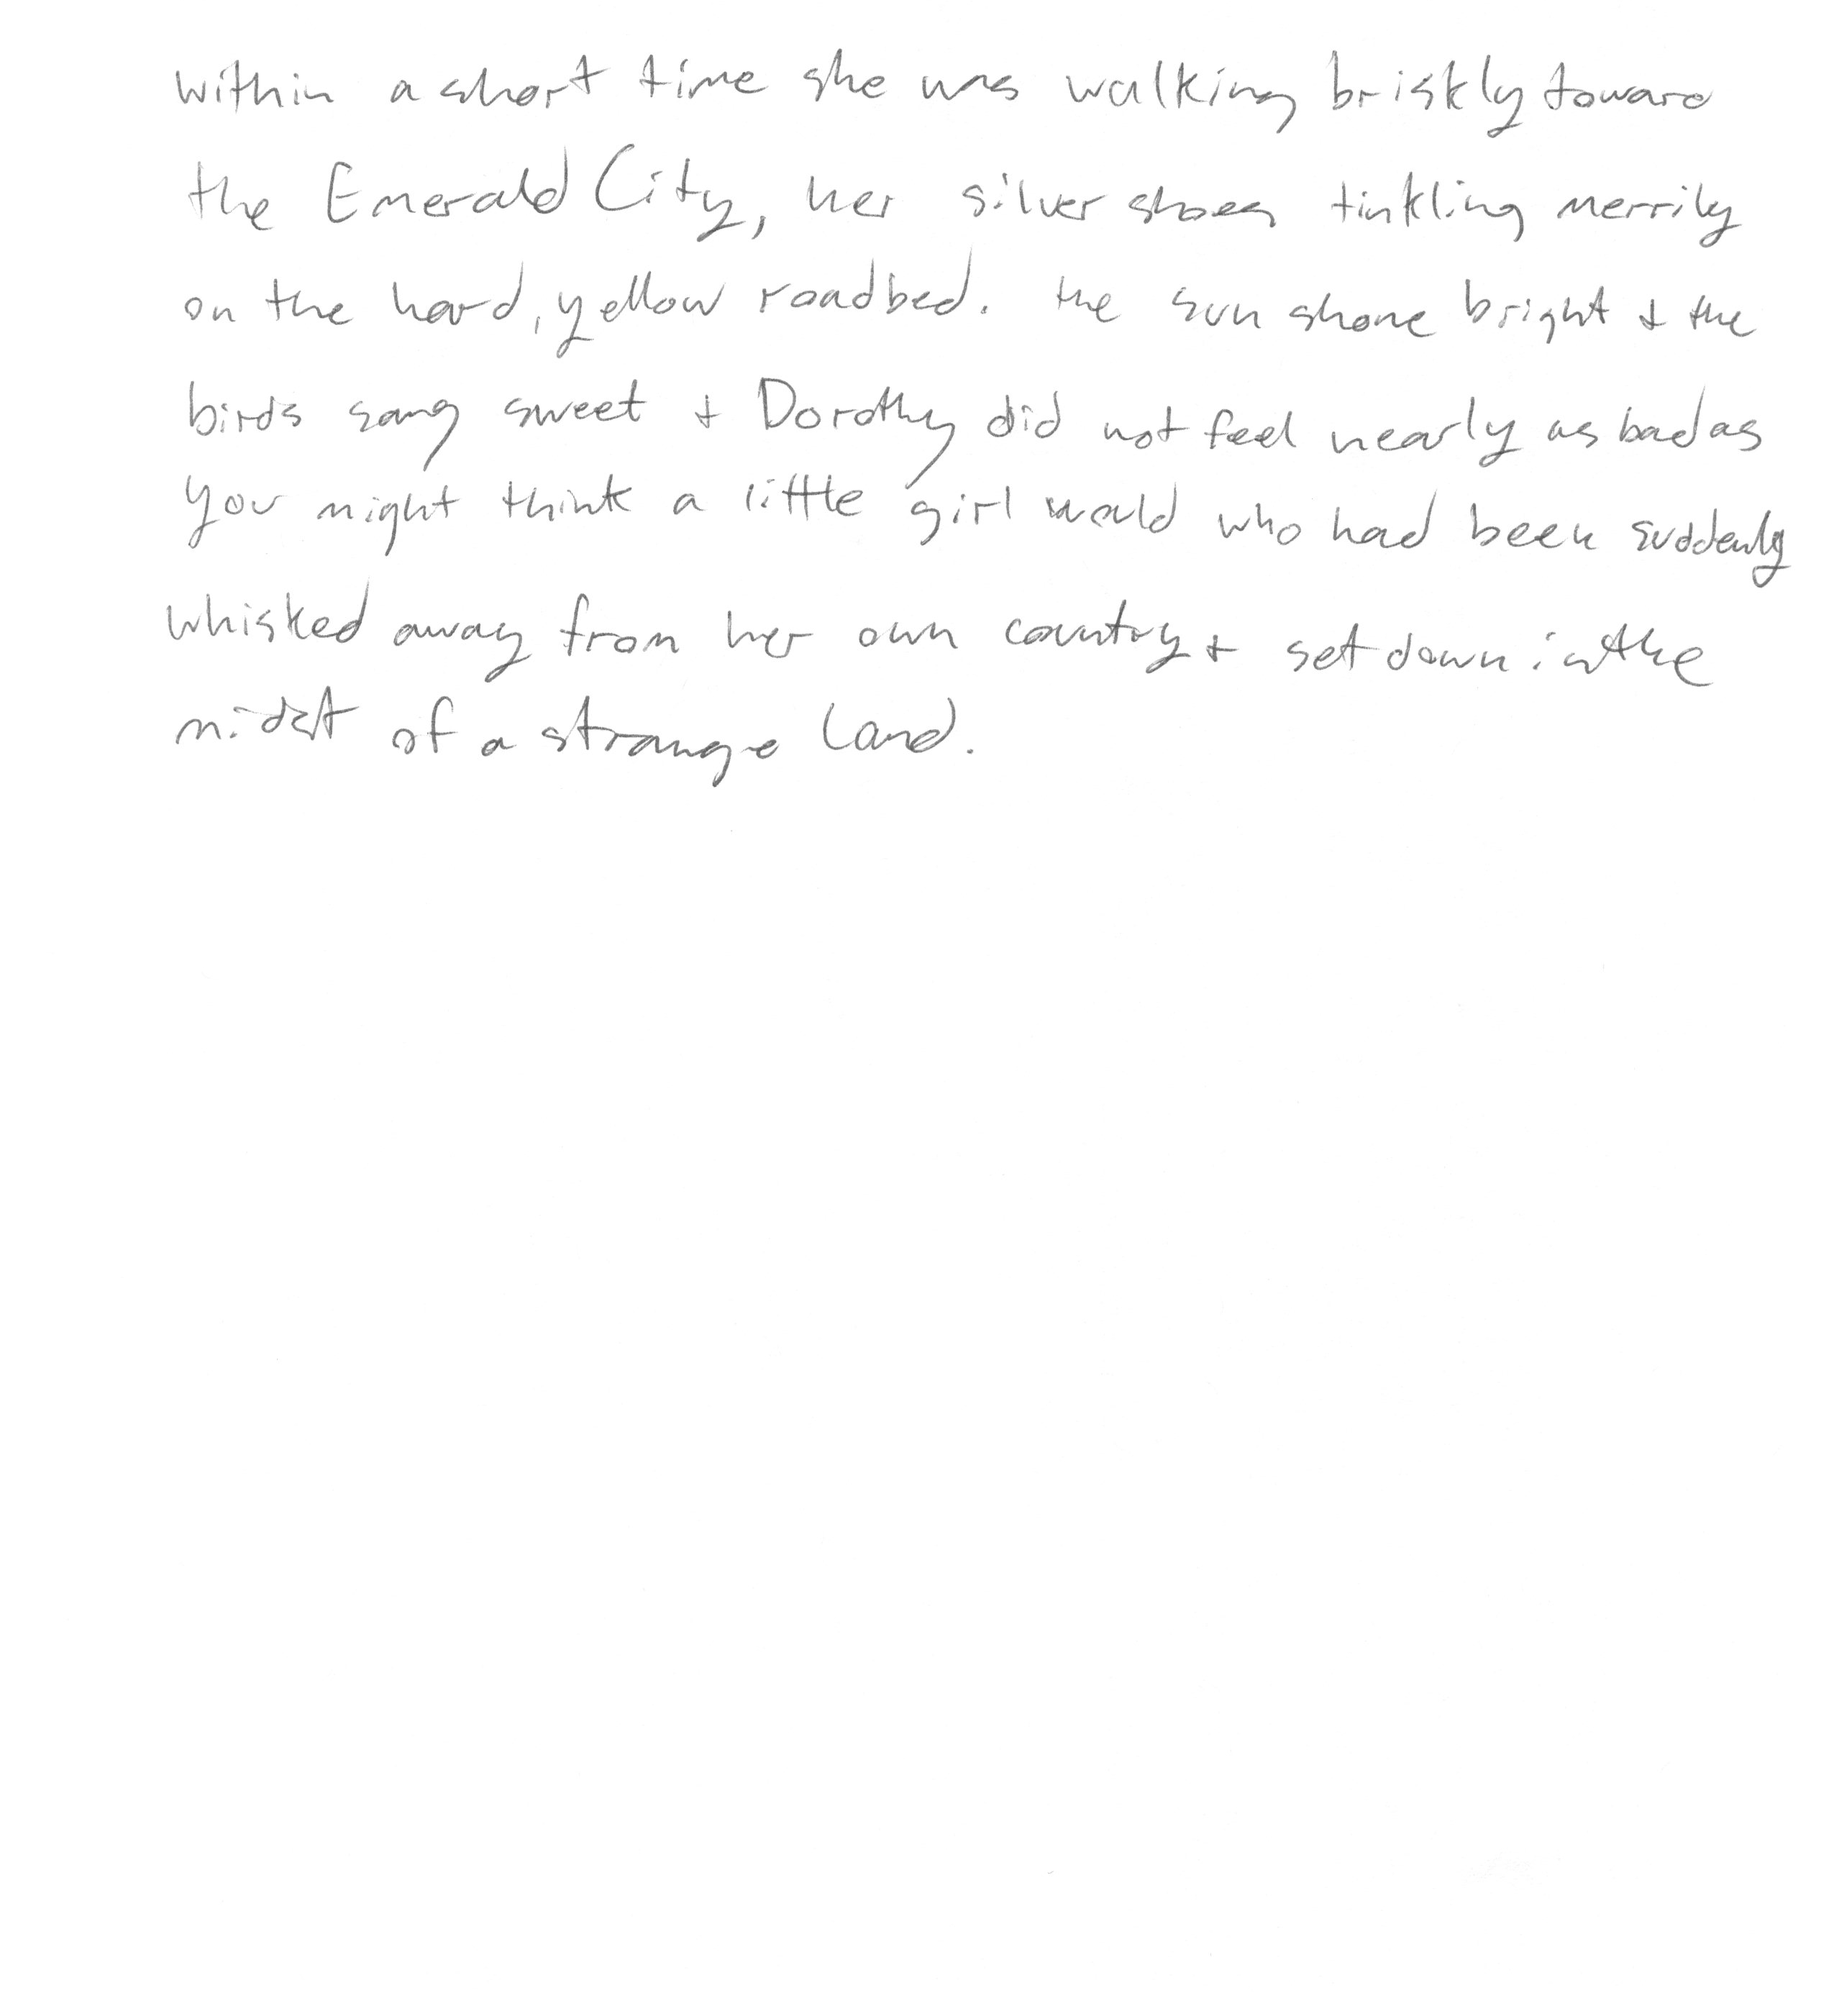 within a short time she was walking briskly toward
the Emerald City, her silver shoes tinkling merrily
on the hard, yellow roadbed. the sun shone bright + the
birds sang sweet + Dorothy did not feel nearly as bad as
you might think a little girl would who had been suddenly
whisked away from her own country + set down in the
midst of a strange land.